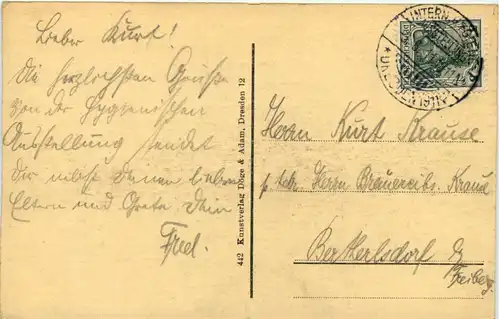 Lieber Kurt!
Die herzlichsten Grüße
von der Hygienischen
Ausstellung sendet
Dir nebst Deinen lieben
Eltern und Grete Dein
Fred.
442 Kunstverlag Döge & Adam, Dresden 12
INTERN. HYGIENE
DRESDEN 1911
Herrn Kurt Krause
p. Adr. Herrn Brauereibs. Krause
Berthelsdorf b/
Freiberg.